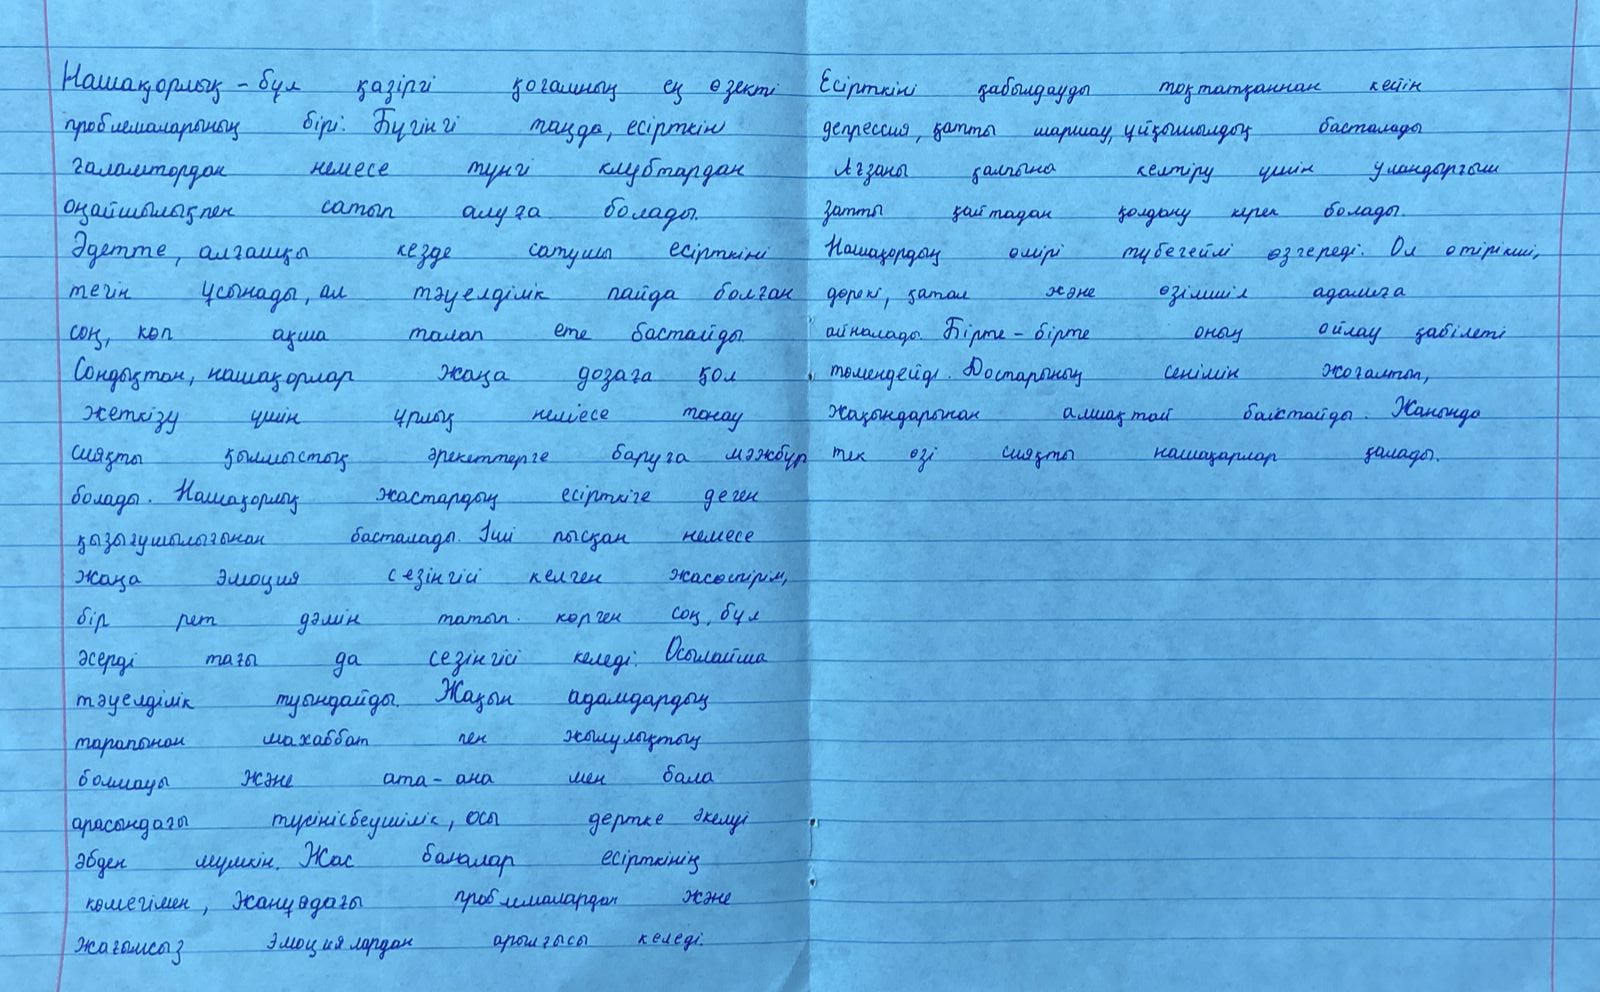 Нашақорлық – бұл қазіргі қоғамның ең өзекті
проблемаларының бірі. Бүгінгі таңда, есірткін
ғаламтордан немесе түнгі клубтардан
оңайшылықпен сатып алуға болады.
Әдетте, алғашқы кезде сатушы есірткіні
тегін ұсынады, ал тәуелділік пайда болған
соң, көп ақша талап ете бастайды.
Сондықтан, нашақорлар жаңа дозаға қол
жеткізу үшін ұрлық немесе тонау
сияқты қылмыстық әрекеттерге баруға мәжбүр
болады. Нашақорлық жастардың есірткіге деген
қызығушылығынан басталады. Іші пысқан немесе
жаңа эмоция сезінгісі келген жасөспірім,
бір рет дәмін татып көрген соң, бұл
әсерді тағы да сезінгісі келеді. Осылайша
тәуелділік туындайды. Жақын адамдардың
тарапынан махаббат пен жылулықтың
болмауы және ата-ана мен бала
арасындағы түсініcбеушілік, осы дертке әкелуі
әбден мүмкін. Жас балалар есірткінің
көмегімен, жанұядағы проблемалардан және
жағымсыз эмоциялардан арылғысы келеді.
Есірткіні қабылдауды тоқтатқаннан кейін
депрессия, қатты шаршау, ұйқышылдық басталады
Ағзаны қалпына келтіру үшін уландырғыш
затты қайтадан қолдану керек болады.
Нашақордың өмірі түбегейлі өзгереді. Ол өтірікші,
дөрекі, қатал және өзімшіл адамға
айналады. Бірте-бірте оның ойлау қабілеті
төмендейді. Достарының сенімін жоғалтып,
жақындарынан алшақтай бастайды. Жанында
тек өзі сияқты нашақарлар қалады.